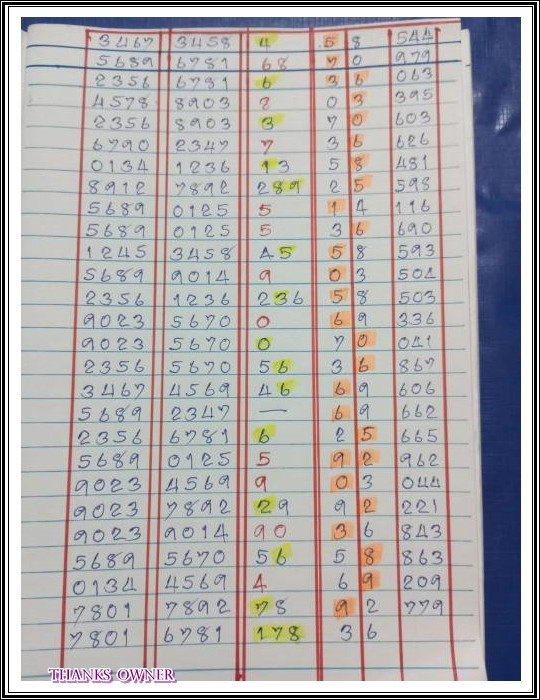 3467 3458 4 5 8 544
5689 6781 68 7 0 979
2356 6781 6 3 6 063
4578 8903 8 0 3 395
2356 8903 3 7 0 603
6790 2347 7 3 6 626
0134 1236 13 5 8 481
8912 7892 289 2 5 598
5689 0125 5 1 4 116
5689 0125 5 3 6 690
1245 3458 45 5 8 593
5689 9014 9 0 3 501
2356 1236 236 5 8 503
9023 5670 0 6 9 336
9023 5670 0 7 0 041
2356 5670 56 3 6 867
3467 4569 46 6 9 606
5689 2347 — 6 9 662
2356 6781 6 2 5 665
5689 0125 5 9 2 962
9023 4569 9 0 3 044
9023 7892 29 9 2 221
9023 9014 90 3 6 843
5689 5670 56 5 8 863
0134 4569 4 6 9 209
7801 7892 78 9 2 779
7801 6781 178 3 6
THANKS OWNER